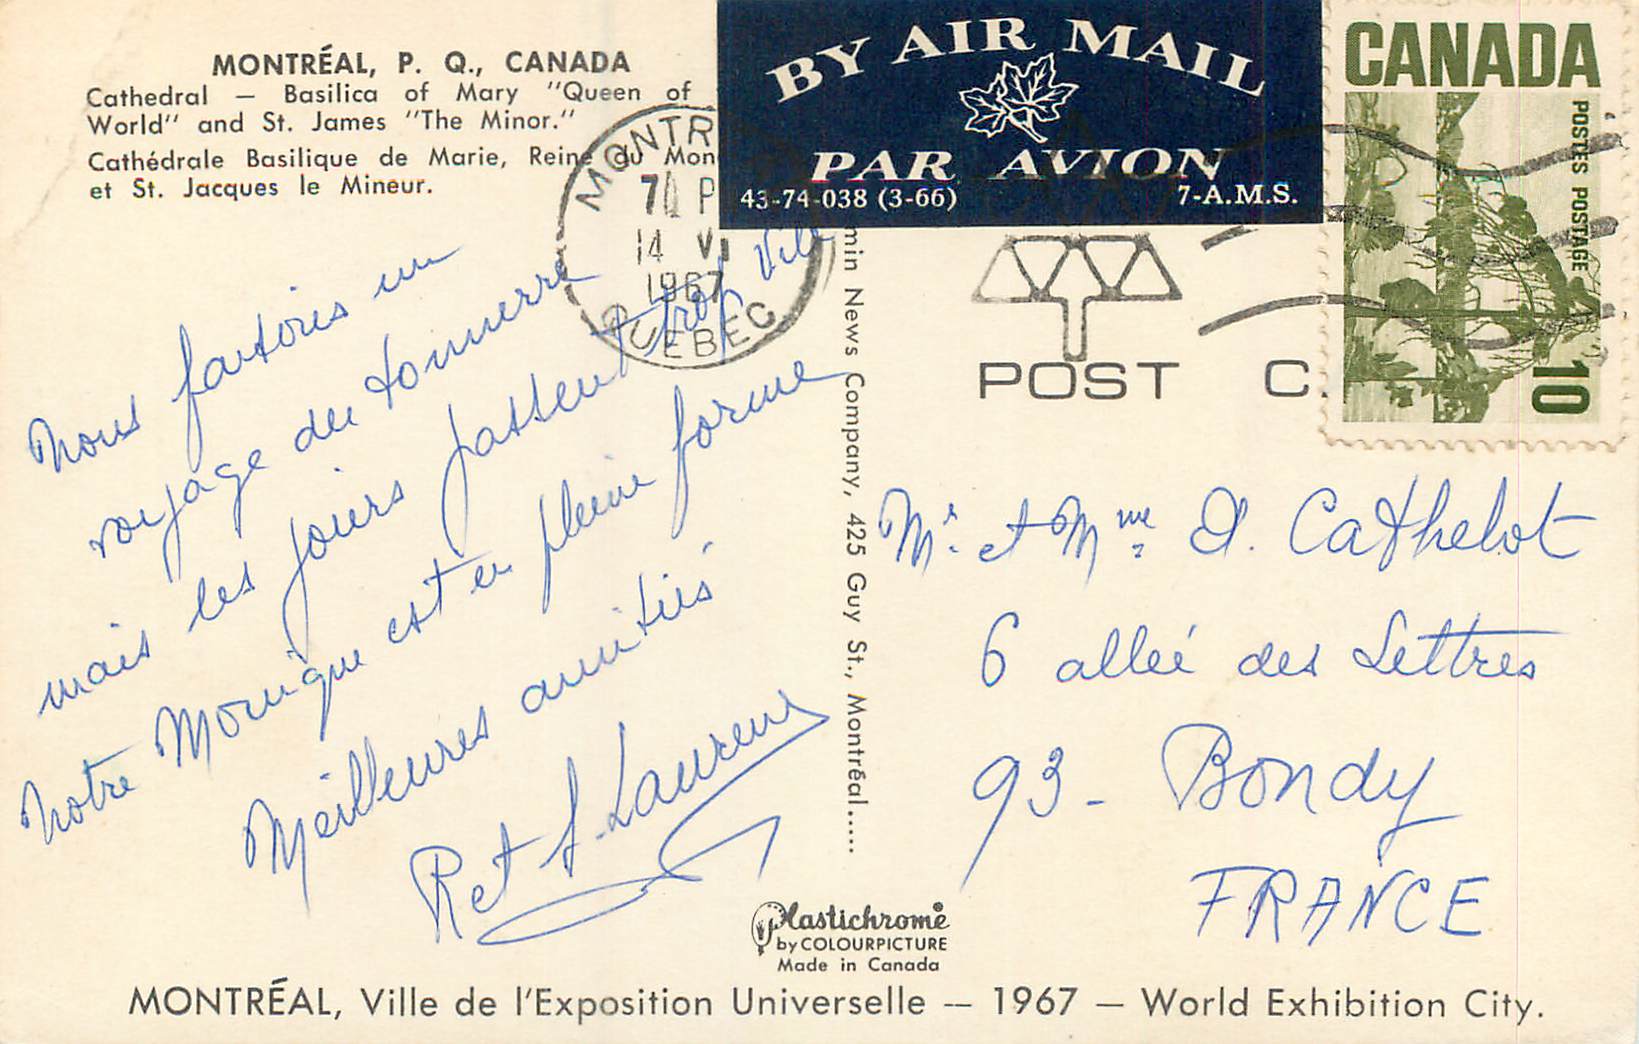 MONTRÉAL, P. Q., CANADA
Cathedral — Basilica of Mary "Queen of
World" and St. James "The Minor."
Cathédrale Basilique de Marie, Reine du Mon
et St. Jacques le Mineur.
BY AIR MAIL
PAR AVION
43-74-038 (3-66) 7-A.M.S.
CANADA
POSTES POSTAGE
10
MONTR
P
14 VI
1967
QUEBEC
POST C
Nous faisons un
voyage du tonnerre
mais les jours passent trop vite
Notre Monique est en pleine forme
Meilleures amitiés
R et J. Laurent
min News Company, 425 Guy St., Montréal.....
Mr. et Mme A. Cathelot
6 allée des Lettres
93 - Bondy
FRANCE
Plastichrome
by COLOURPICTURE
Made in Canada
MONTRÉAL, Ville de l'Exposition Universelle -- 1967 — World Exhibition City.